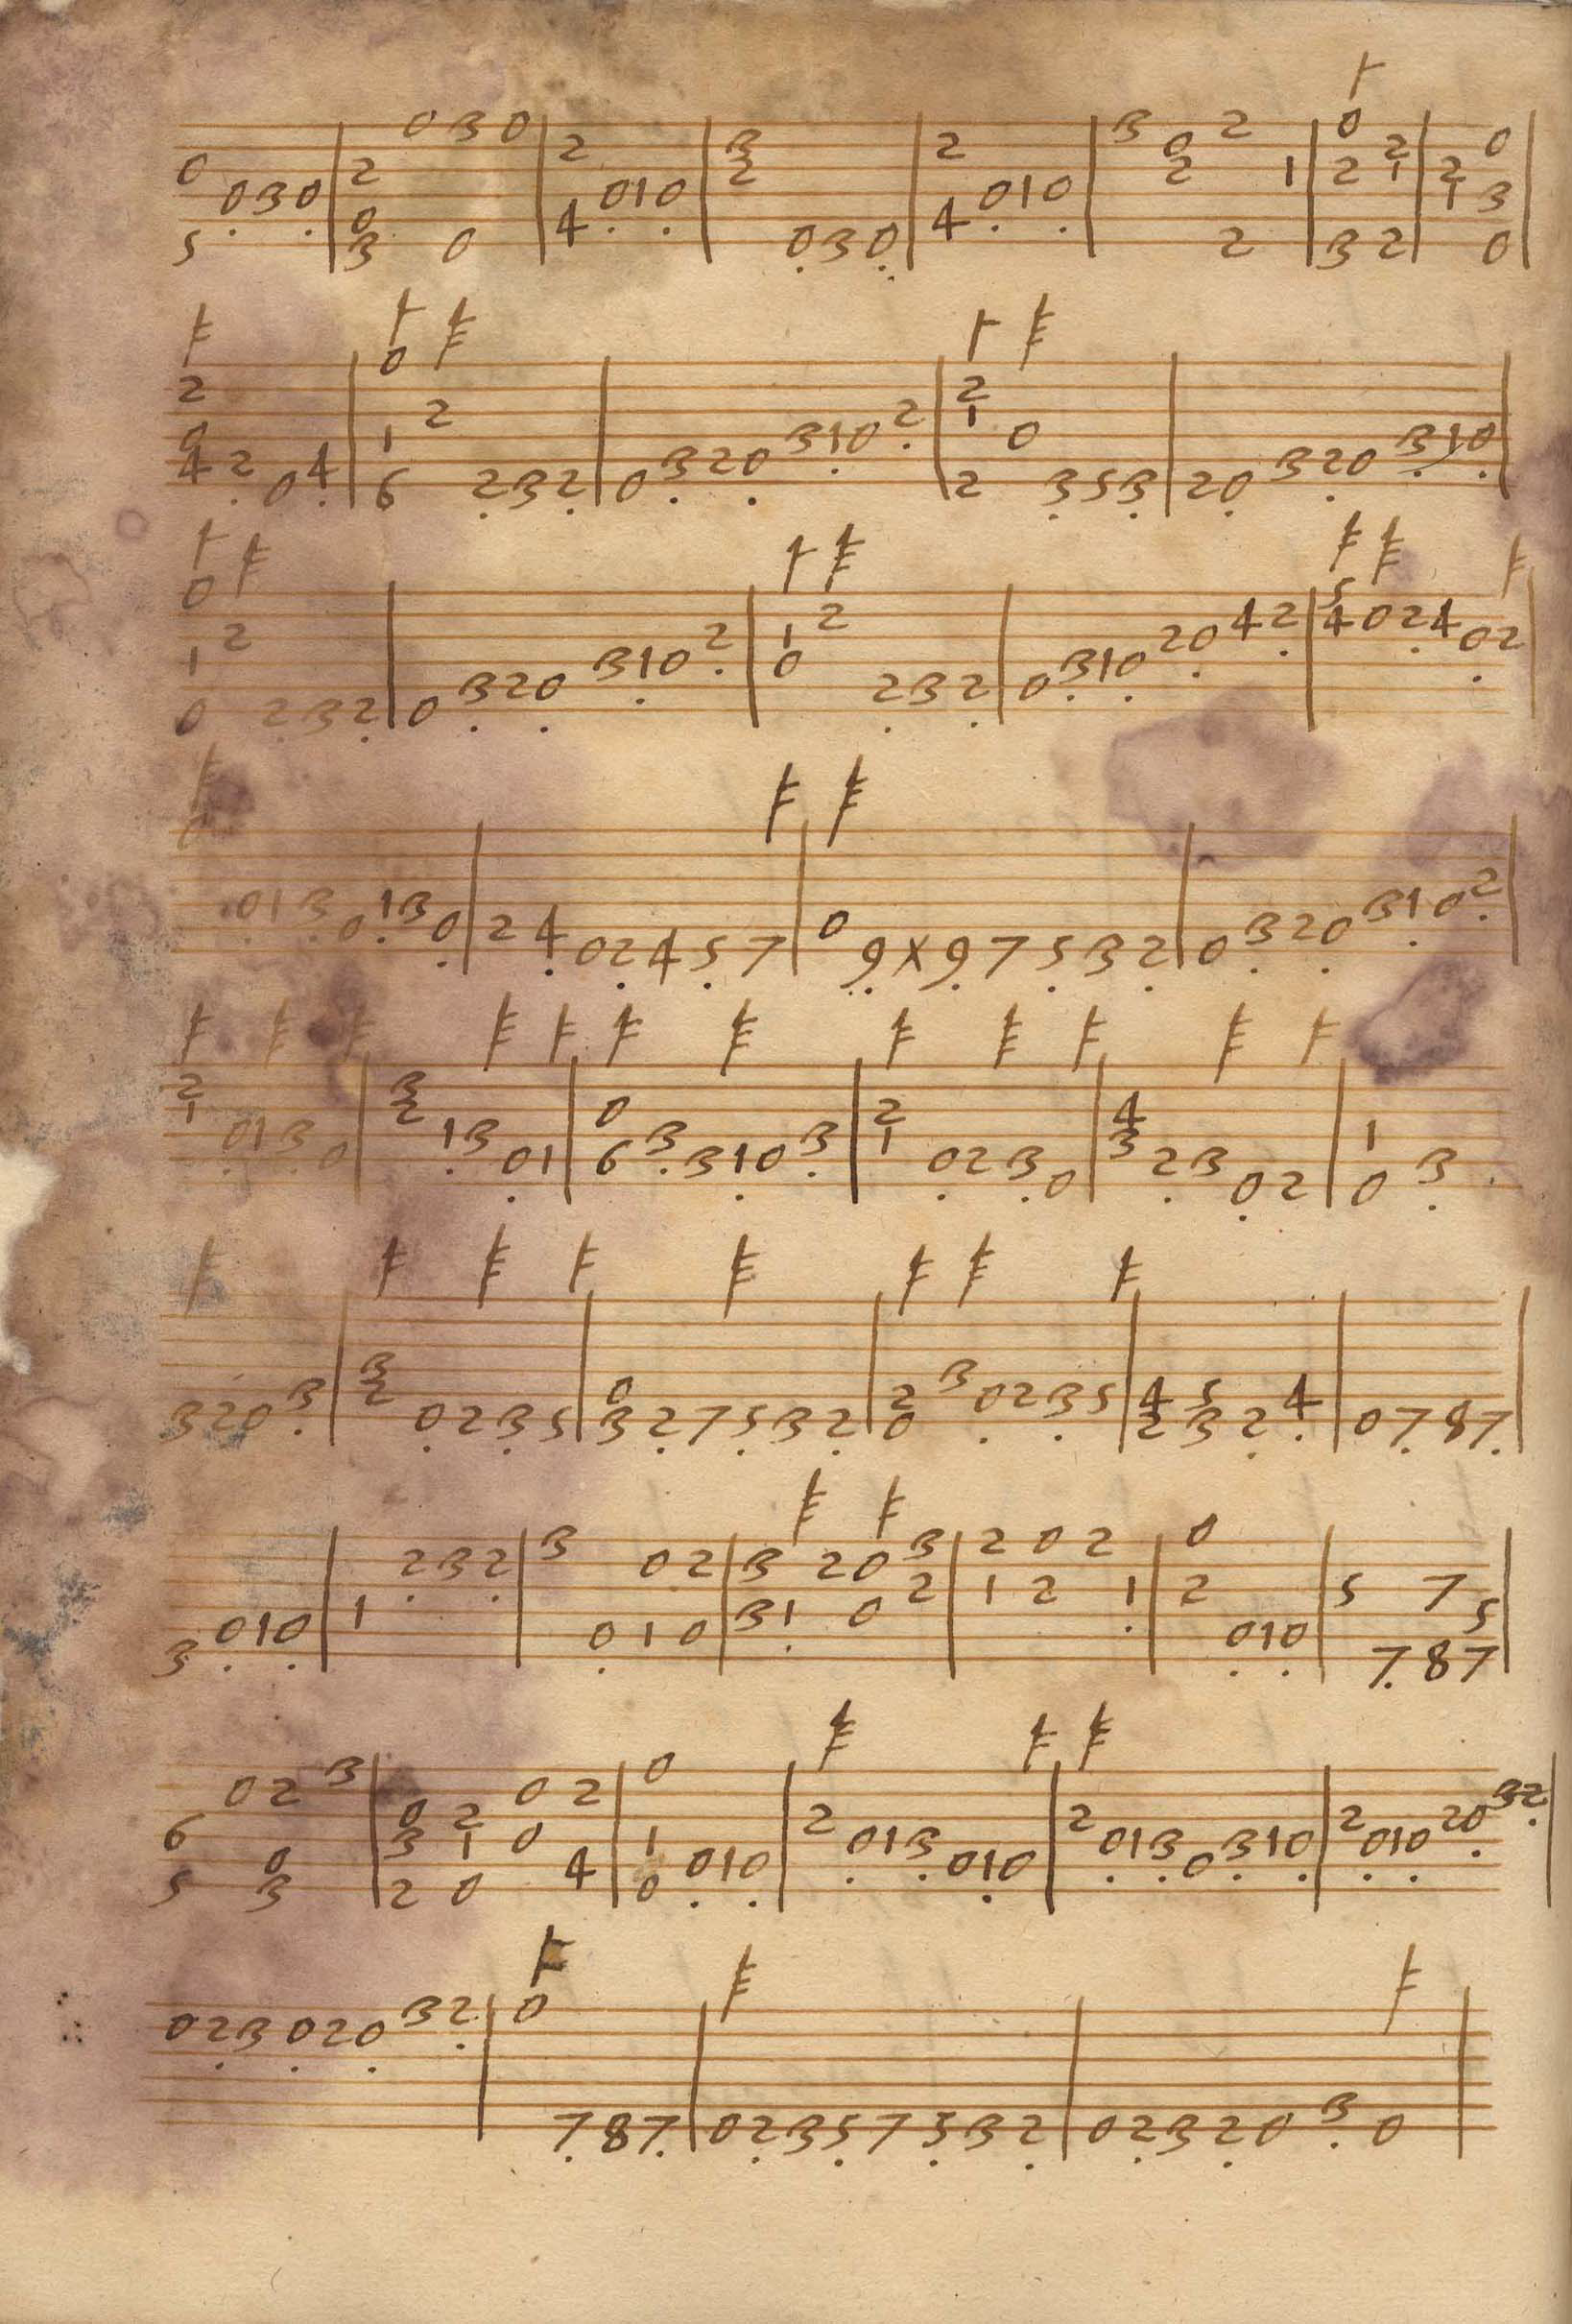 0 5 0 3 0 | 2 0 3 0 3 0 0 | 2 4 0 1 0 | 3 2 0 3 0 | 2 4 0 1 0 | 3 0 2 2 2 1 | 0 2 3 2 1 2 | 2 1 0 3 0 |
2 0 4 2 0 4 | 0 1 6 2 2 3 2 | 0 3 2 0 3 1 0 2 | 2 1 2 0 3 5 3 | 2 0 3 2 0 3 1 0 |
0 1 0 2 2 3 2 | 0 3 2 0 3 1 0 2 | 1 0 2 2 3 2 | 0 3 1 0 2 0 4 2 | 5 4 0 2 4 0 2 |
0 0 1 3 0 1 3 0 | 2 4 0 2 4 5 7 | 0 9 X 9 7 5 3 2 | 0 3 2 0 3 1 0 2 |
2 1 0 1 3 0 | 3 2 1 3 0 1 | 0 6 3 3 1 0 3 | 2 1 0 2 3 0 | 4 3 2 3 0 2 | 1 0 3
3 2 0 3 | 3 2 0 2 3 5 | 0 3 2 7 5 3 2 | 2 0 3 0 2 3 5 | 4 2 5 3 2 4 | 0 7 8 7 |
3 0 1 0 | 1 2 3 2 | 3 0 0 1 2 0 | 3 3 1 2 0 0 3 2 | 2 1 0 2 2 1 | 0 2 0 1 0 | 5 7 7 8 5 7 |
6 5 0 2 0 3 3 | 0 3 2 2 1 0 0 0 2 4 | 0 1 0 0 1 0 | 2 0 1 3 0 1 0 | 2 0 1 3 0 3 1 0 | 2 0 1 0 2 0 3 2 |
0 2 3 0 2 0 3 2 | 0 7 8 7 | 0 2 3 5 7 5 3 2 | 0 2 3 2 0 3 0 |